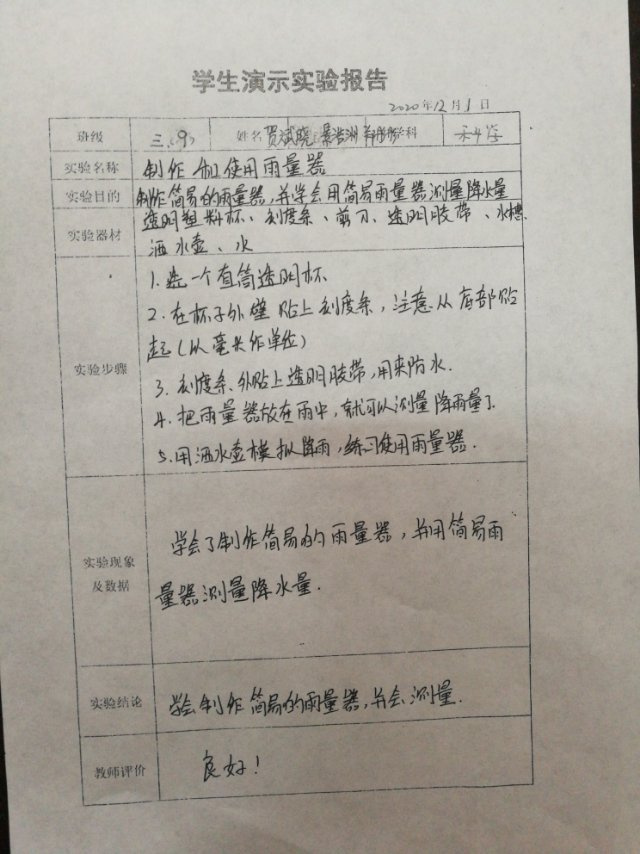 学生演示实验报告
2020年12月1日
班级 三（9） 姓名 贾斌晓 学科 科学
实验名称 制作和使用雨量器
实验目的 制作简易的雨量器，并学会用简易雨量器测量降水量
实验器材 透明塑料杯、刻度条、剪刀、透明胶带、水槽
洒水壶、水
实验步骤
1.选一个直筒透明杯
2.在杯子外壁贴上刻度条，注意从底部贴
起（以毫米作单位）
3.刻度条外贴上透明胶带，用来防水.
4.把雨量器放在雨中，就可以测量降雨量了.
5.用洒水壶模拟降雨，练习使用雨量器.
实验现象
及数据
学会了制作简易的雨量器，并用简易雨
量器测量降水量.
实验结论 学会制作简易的雨量器，并会测量.
教师评价 良好！